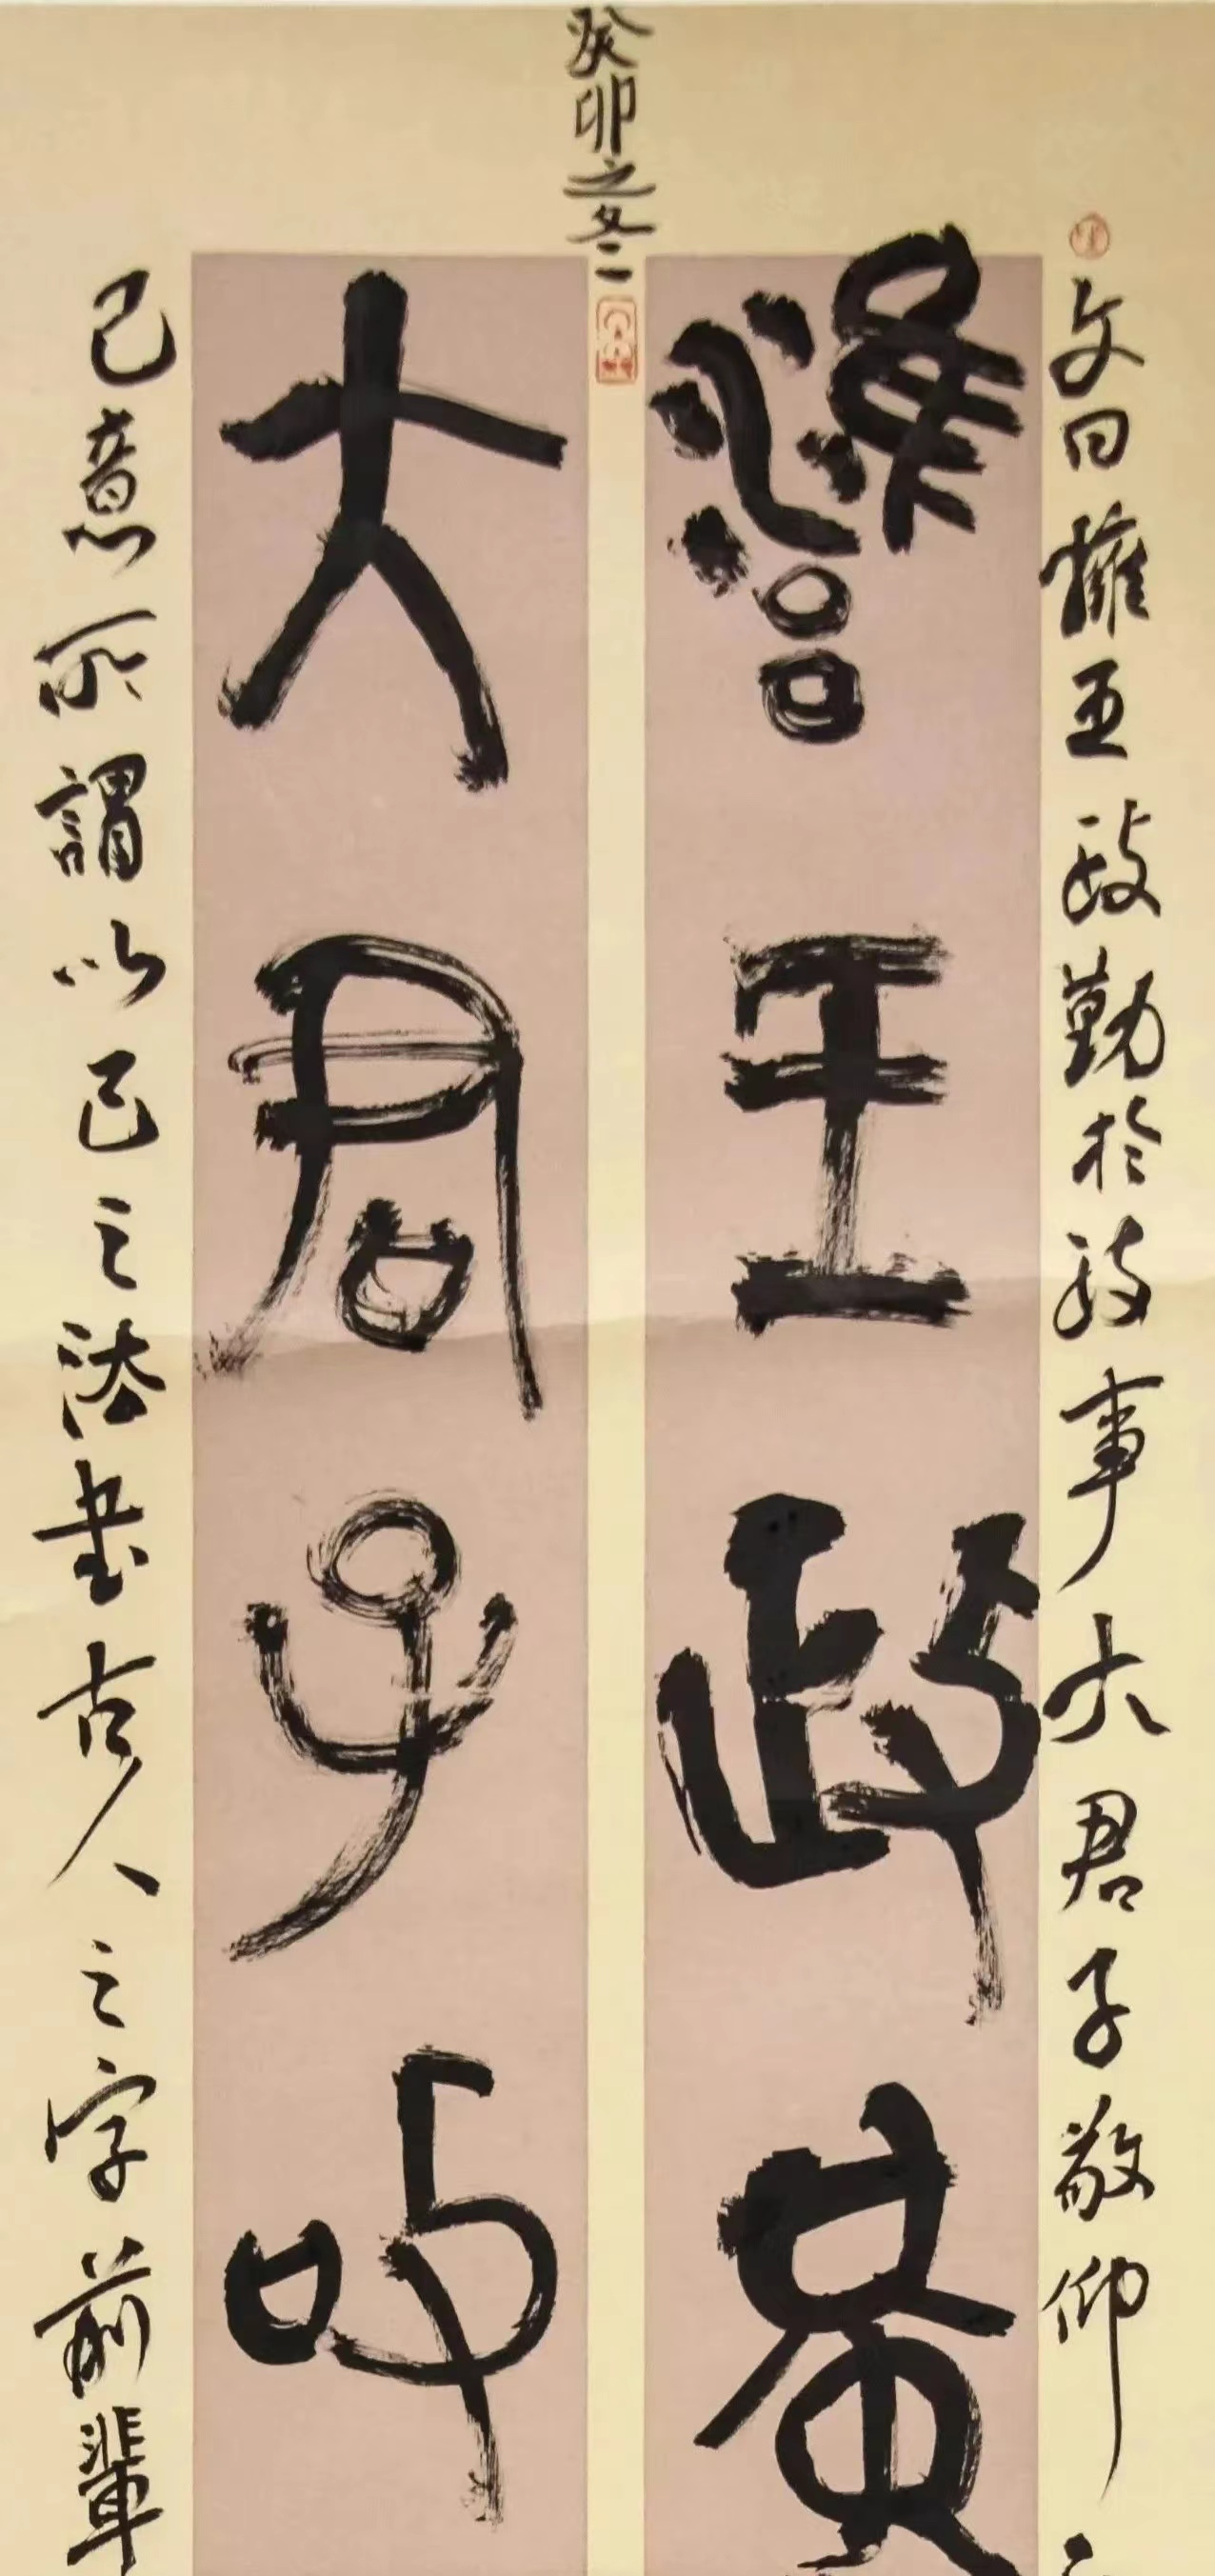 文曰擁王政勤於政事大君子敬仰
雝王政堇
癸卯之冬
大君子敬
己意所謂以己之法書古人之字前輩